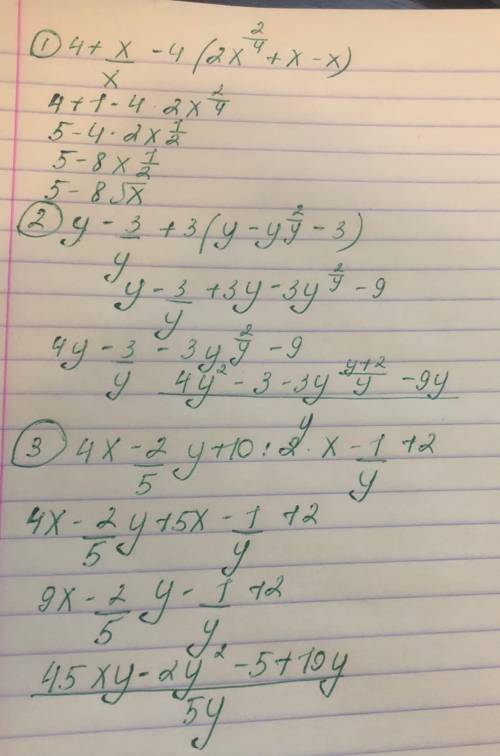 ① 4 + x/x - 4 (2x^(2/4) + x - x)
4 + 1 - 4 · 2x^(2/4)
5 - 4 · 2x^(1/2)
5 - 8x^(1/2)
5 - 8√x
② y - 3/y + 3(y - y^(2/y) - 3)
y - 3/y + 3y - 3y^(2/y) - 9
4y - 3/y - 3y^(2/y) - 9
(4y² - 3 - 3y^((y+2)/y) - 9y)/y
③ 4x - 2/5 y + 10 : 2 · x - 1/y + 2
4x - 2/5 y + 5x - 1/y + 2
9x - 2/5 y - 1/y + 2
(45xy - 2y² - 5 + 10y)/5y